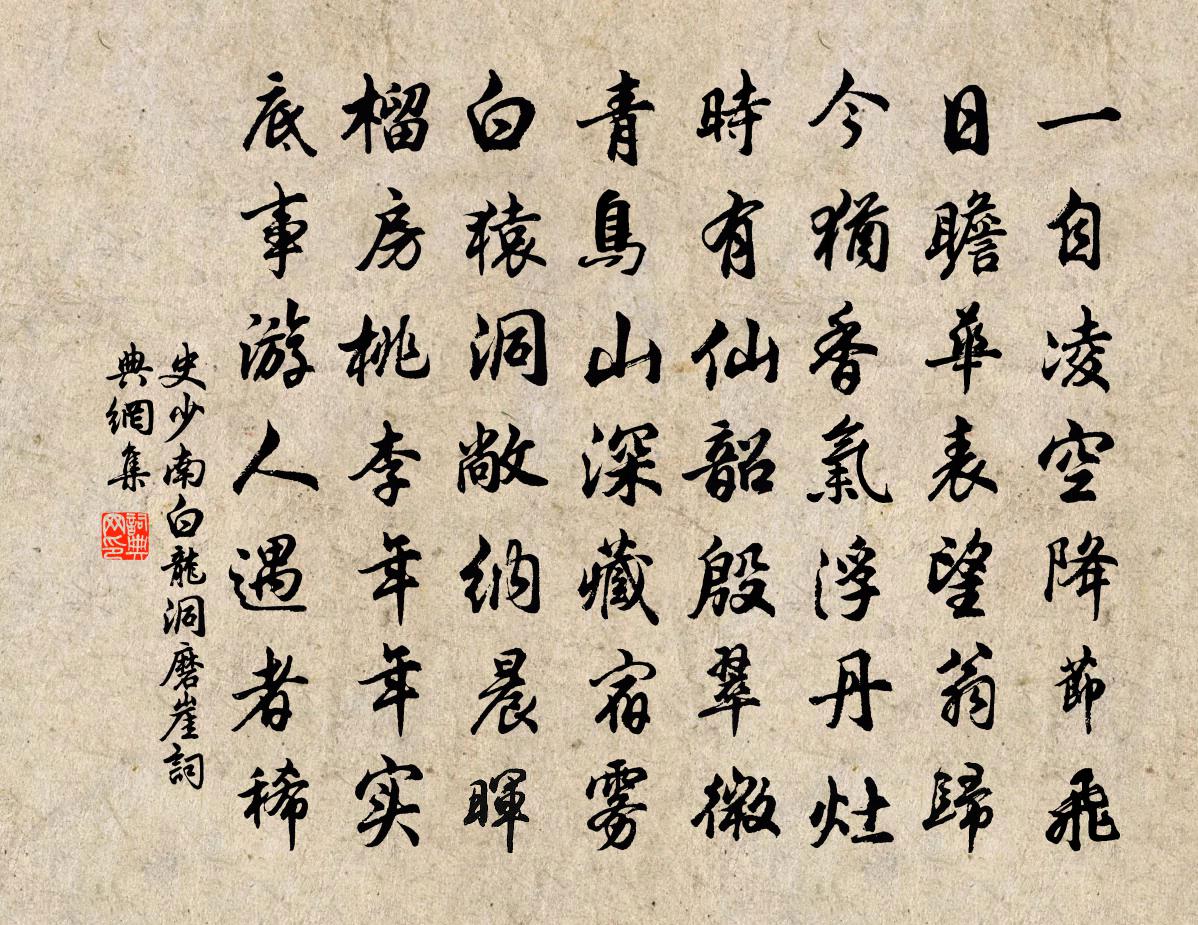 一自凌空降節飛
日瞻華表望翁歸
今猶香氣浮丹灶
時有仙韶殷翠微
青鳥山深藏宿雾
白猿洞敞納晨暉
榴房桃李年年实
底事游人遇者稀
史少南白龍洞磨崖詞
典網集
詞典
网印